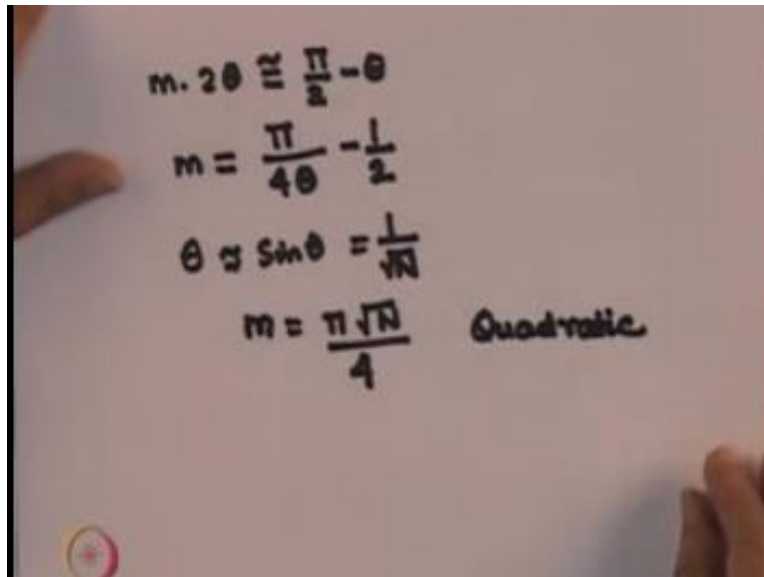 m. 2θ ≅ π/2 - θ
m = π/4θ - 1/2
θ ≈ Sinθ = 1/√N
m = π√N/4 Quadratic